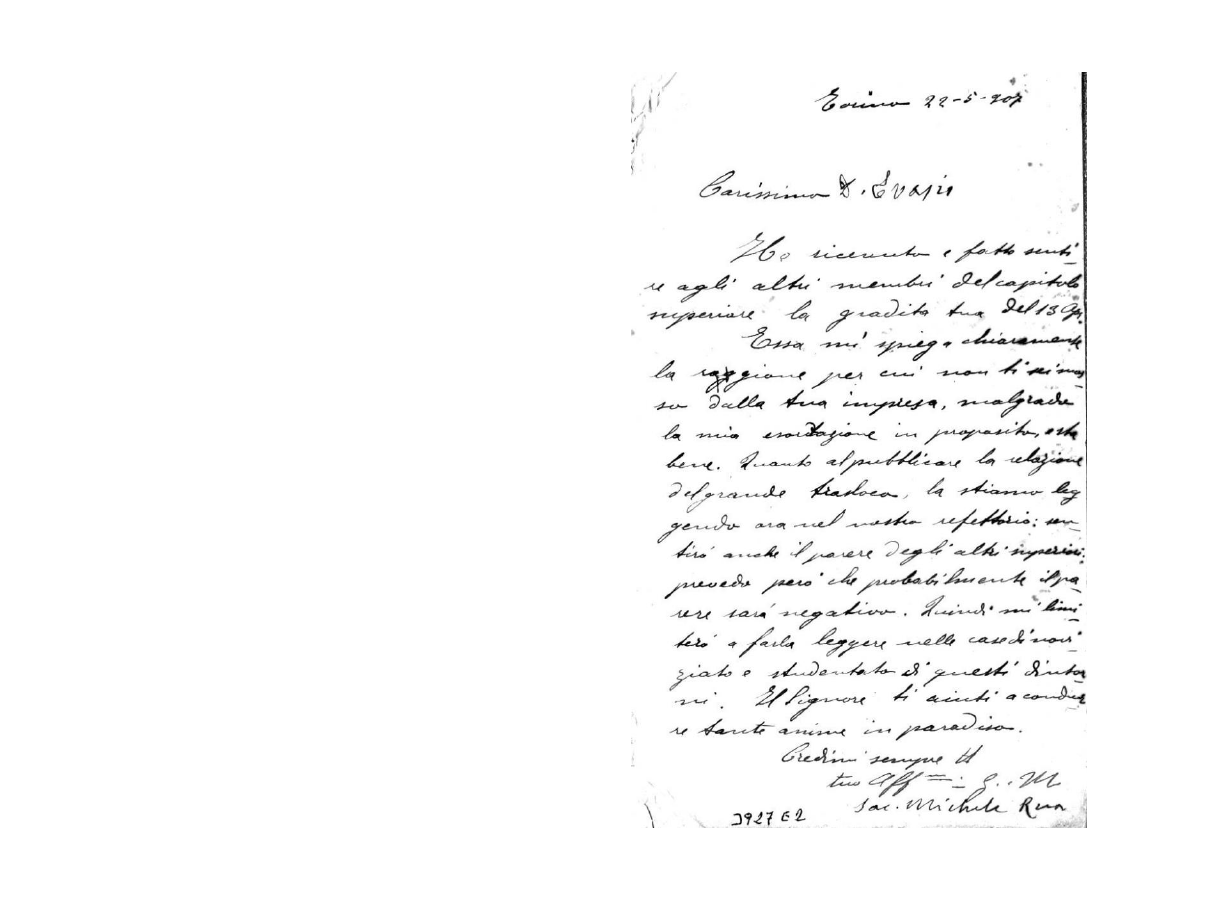 Torino 22-5-907
Carissimo D. Evasio
Ho ricevuto e fatto senti-
re agli altri membri del capitolo
superiore la gradita tua del 13 Ap.
Essa mi spiega chiaramente
la raggione per cui non ti sei mos-
so dalla tua impresa, malgrado
la mia esortazione in proposito, sta
bene. Quanto al pubblicare la relazione
del grande trasloco, la stiamo leg
gendo ora nel nostro refettorio: sen-
tirò anche il parere degli altri superiori:
prevedo però che probabilmente il pa-
rere sarà negativo. Quindi mi limi-
terò a farla leggere nelle case di novi-
ziato e studentato di questi dintor-
ni. Il Signore ti aiuti a condur-
re tante anime in paradiso.
Credimi sempre il
tuo Aff in G. M
Sac. Michele Rua
3927 E 2